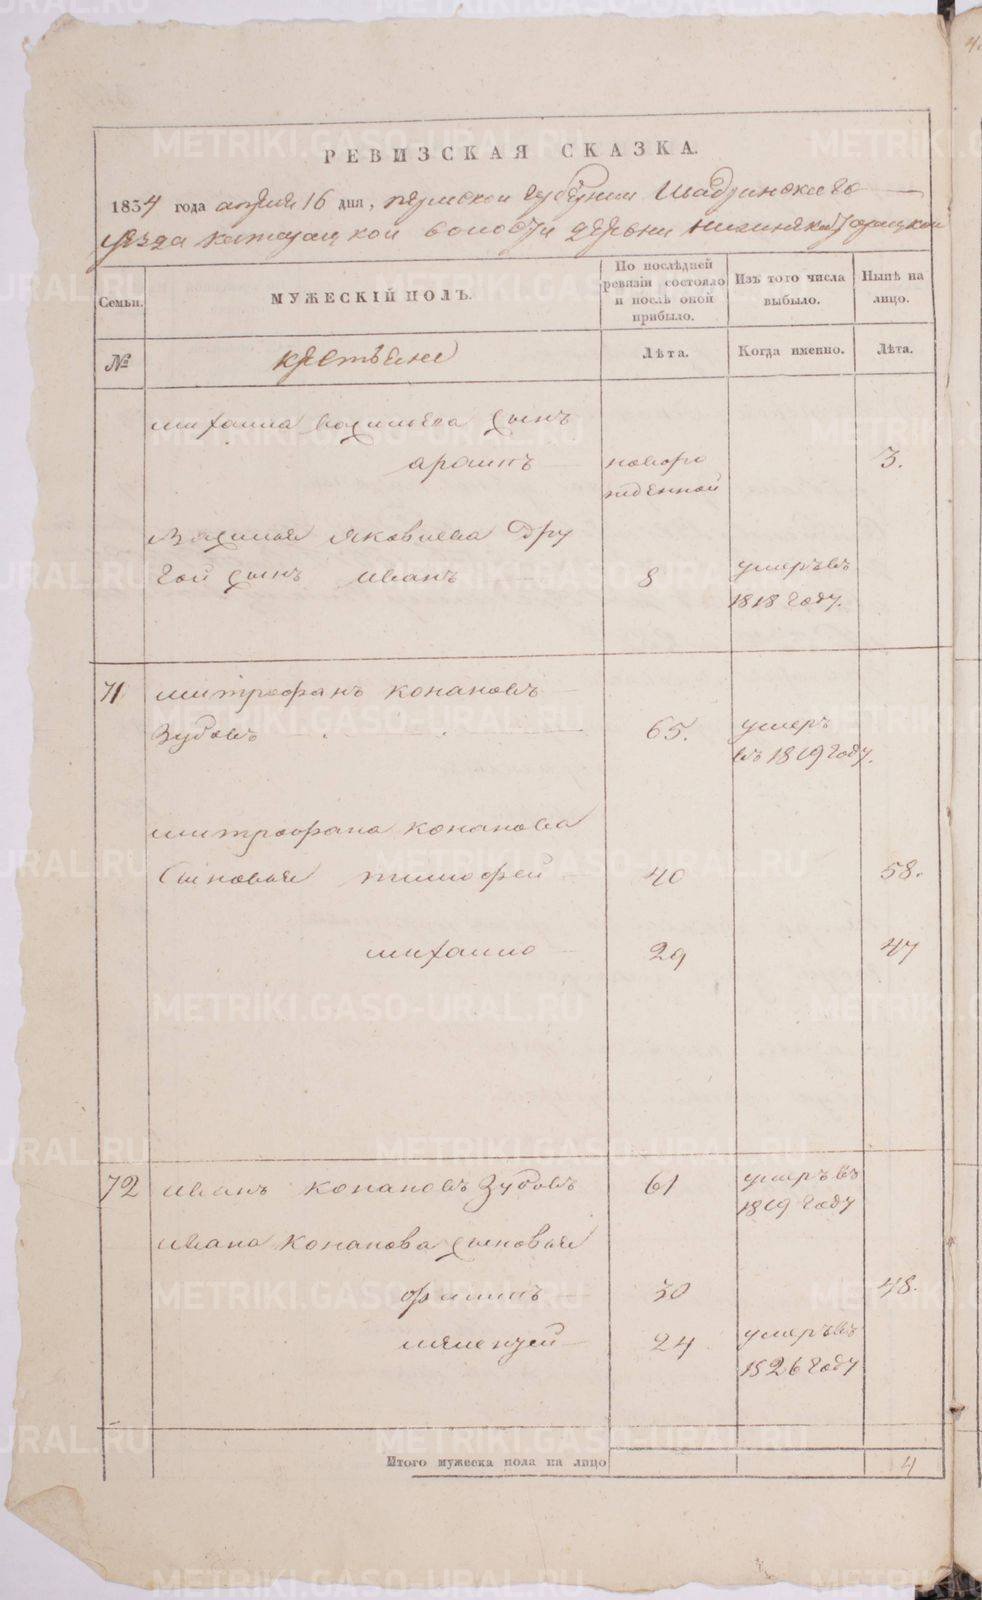 РЕВИЗСКАЯ СКАЗКА.
1834 года апреля 16 дня, пермской губернии Шадринскаго
уезда катайской волости деревни
Семьи.
МУЖЕСКІЙ ПОЛЪ.
По послѣдней ревизіи состояло и послѣ оной прибыло.
Изъ того числа выбыло.
Нынѣ на лицо.
№
крестьяне
Лѣта.
Когда именно.
Лѣта.
михаила сынъ
новоро 3.
жденной
яковлева дру
гой сынъ иванъ 8 умеръ въ
1818 году.
71 митрофанъ конановъ
Зубовъ 65. умеръ
въ 1819 году.
митрофана конанова
Сыновья тимофей 40 58.
михаило 29 47
72 иванъ конановъ Зубовъ 61 умеръ въ
1819 году
ивана конанова сыновья
30 48.
24 умеръ въ
1826 году
Итого мужеска пола на лицо 4
METRIKI.GASO-URAL.RU